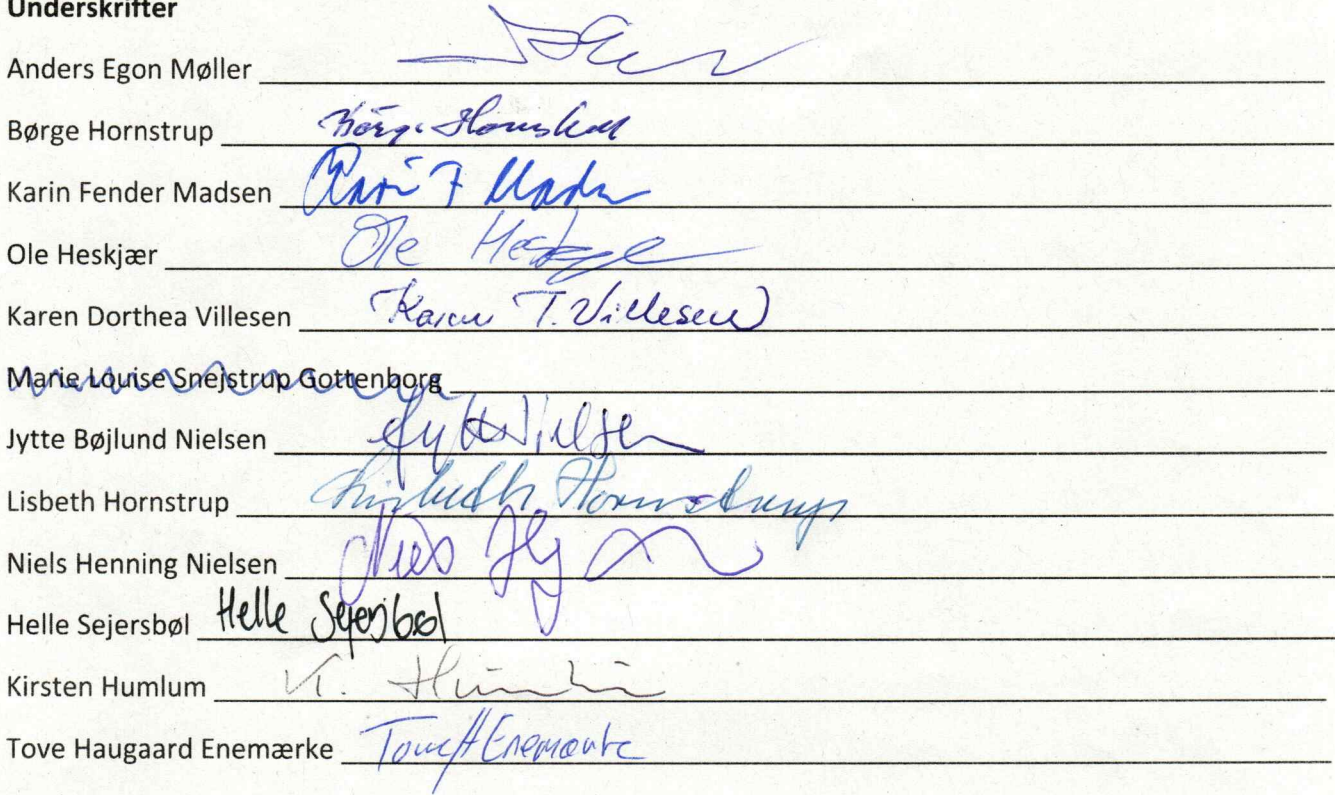 Underskrifter
Anders Egon Møller
Børge Hornstrup Børge Hornstrup
Karin Fender Madsen Karin F Madsen
Ole Heskjær Ole Heskjær
Karen Dorthea Villesen Karen T. Villesen
Marie Louise Snejstrup Gottenborg
Jytte Bøjlund Nielsen Jytte Nielsen
Lisbeth Hornstrup Lisbeth Hornstrup
Niels Henning Nielsen Niels
Helle Sejersbøl Helle Sejersbøl
Kirsten Humlum K. Humlum
Tove Haugaard Enemærke Tove H Enemærke